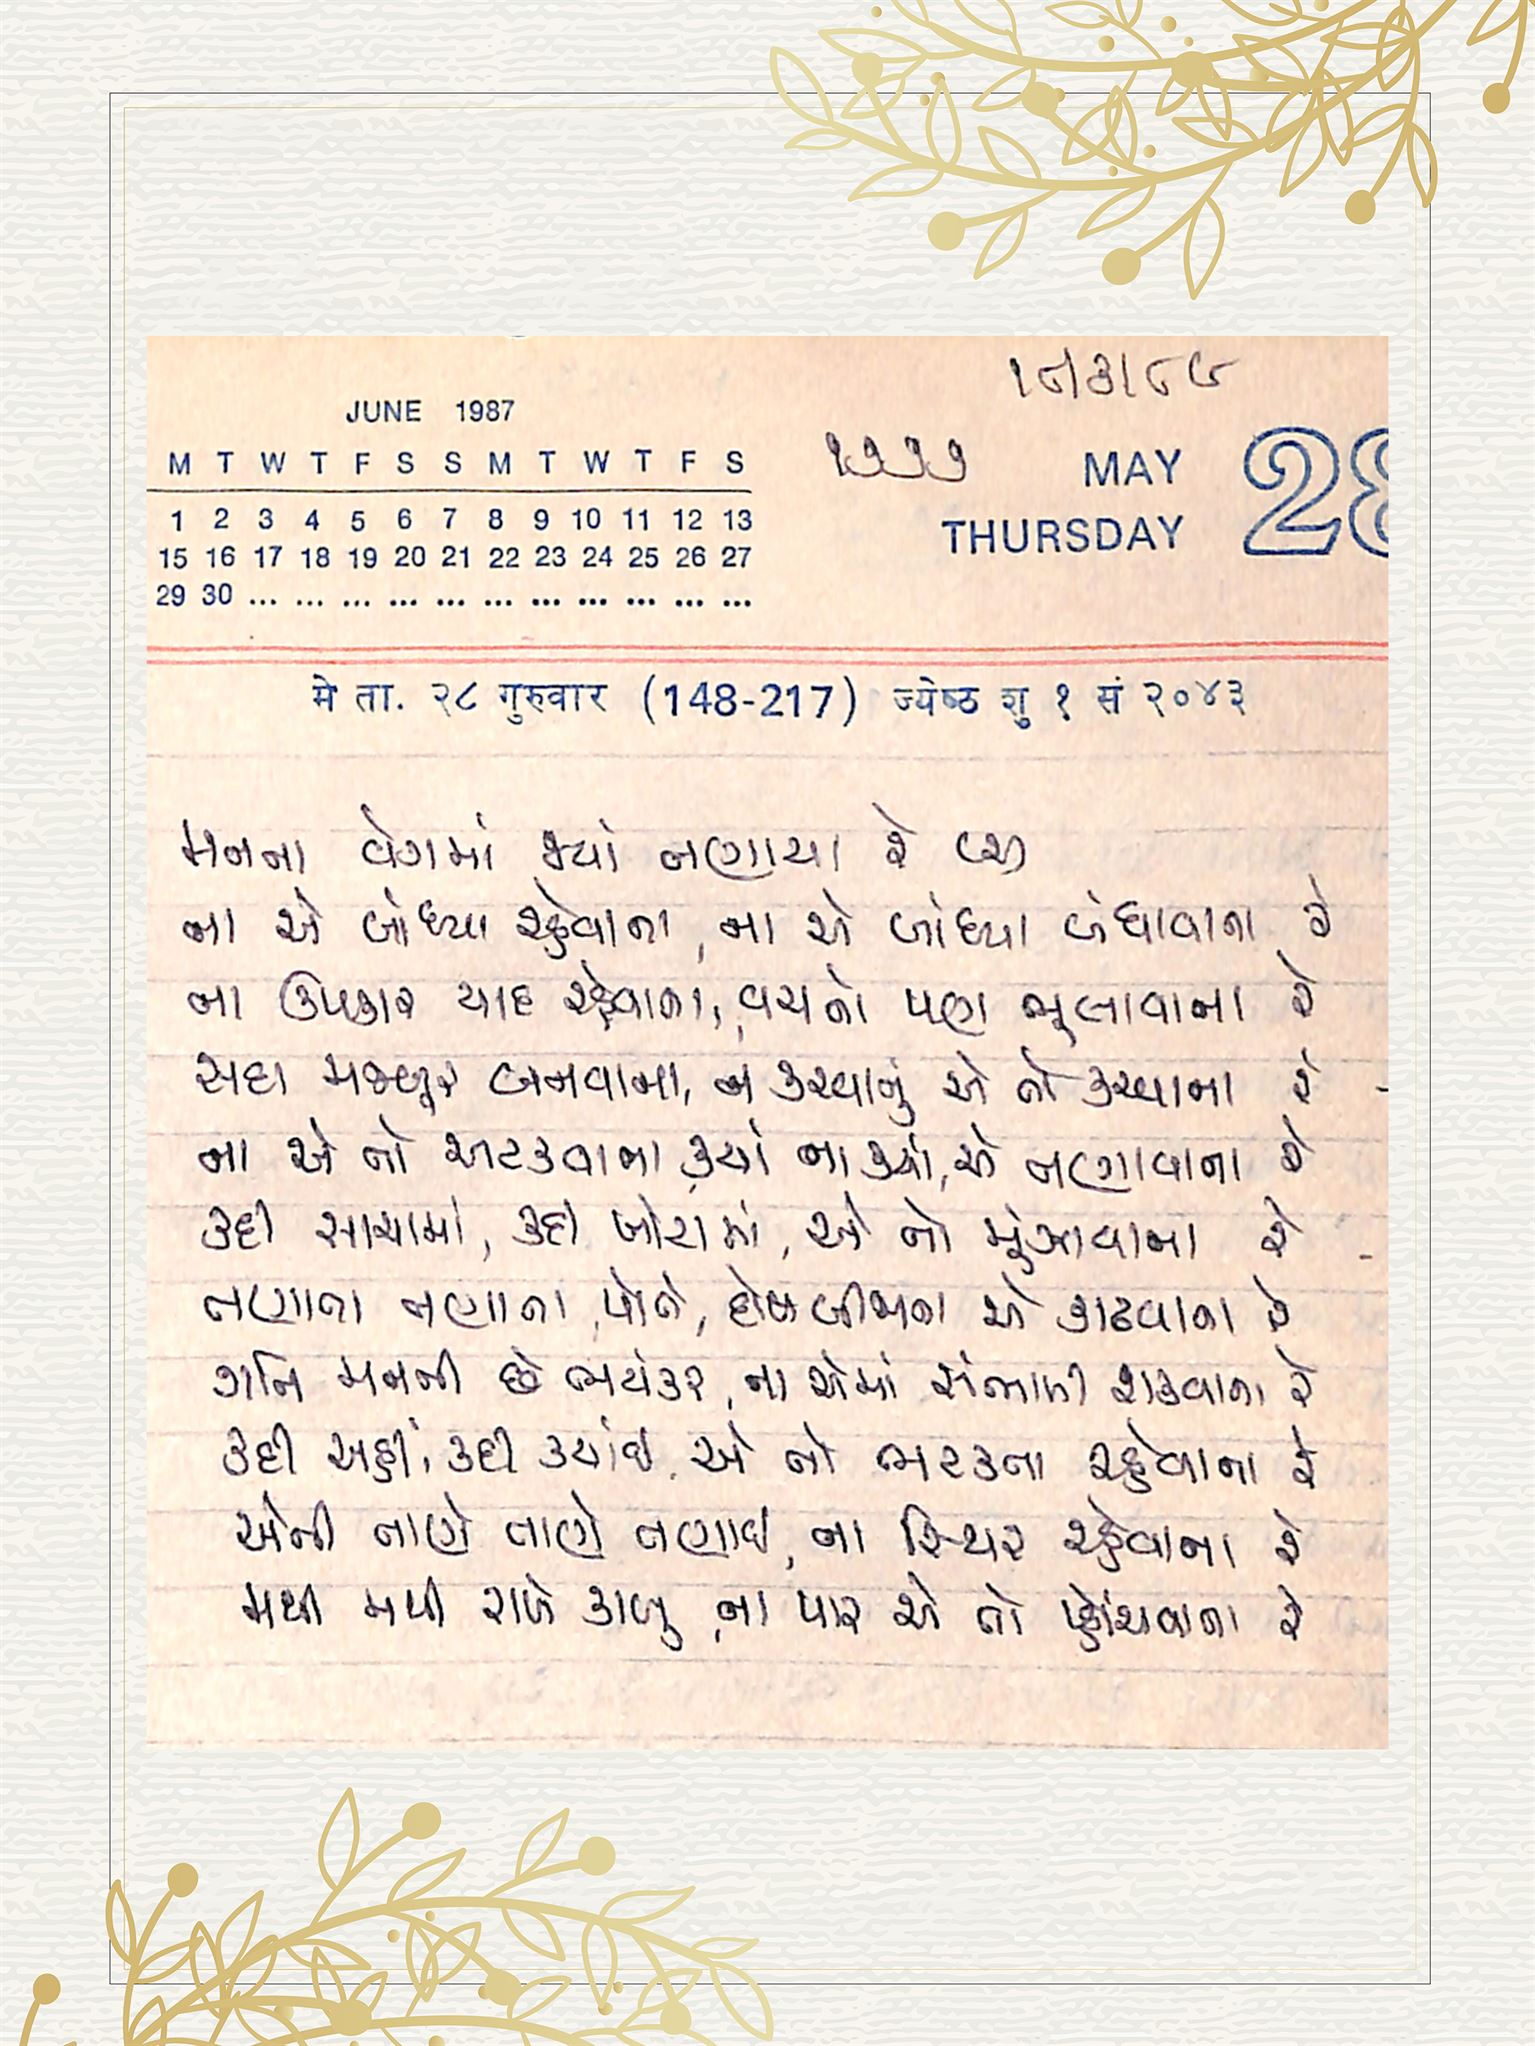 ૧૮/૩/૮૯
JUNE 1987
૧૭૭૭ MAY 28
M T W T F S S M T W T F S
THURSDAY
1 2 3 4 5 6 7 8 9 10 11 12 13
15 16 17 18 19 20 21 22 23 24 25 26 27
29 30 ... ... ... ... ... ... ... ... ... ... ...
मे ता. २८ गुरुवार (148-217) ज्येष्ठ शु १ सं २०४३
મનના વેગમાં જ્યાં તણાયા રે
ના એ બાંધ્યા રહેવાના, ના એ બાંધ્યા બંધાવાના રે
ના ઉપકાર યાદ રહેવાના, વચનો પણ ભૂલાવાના રે
સદા મજબૂર બનવાના, ન કરવાનું એ તો કરવાના રે
ના એ તો અટકવાના ક્યાં ના ક્યાં, એ તણાવાના રે
કદી સાચામાં, કદી ખોટામાં, એ તો મૂંઝાવાના રે
તણાતા તણાતા પોતે, દોષ બીજાના એ કાઢવાના રે
ગતિ મનની છે ભયંકર, ના એમાં સંભાળી શકવાના રે
કદી અહીં, કદી ક્યાંઈ, એ તો ભટકતા રહેવાના રે
એની તાણે તાણે તણાઈ, ના સ્થિર રહેવાના રે
મથી મથી રાખે કાબૂ, ના પાર એ તો પ્હોંચવાના રે